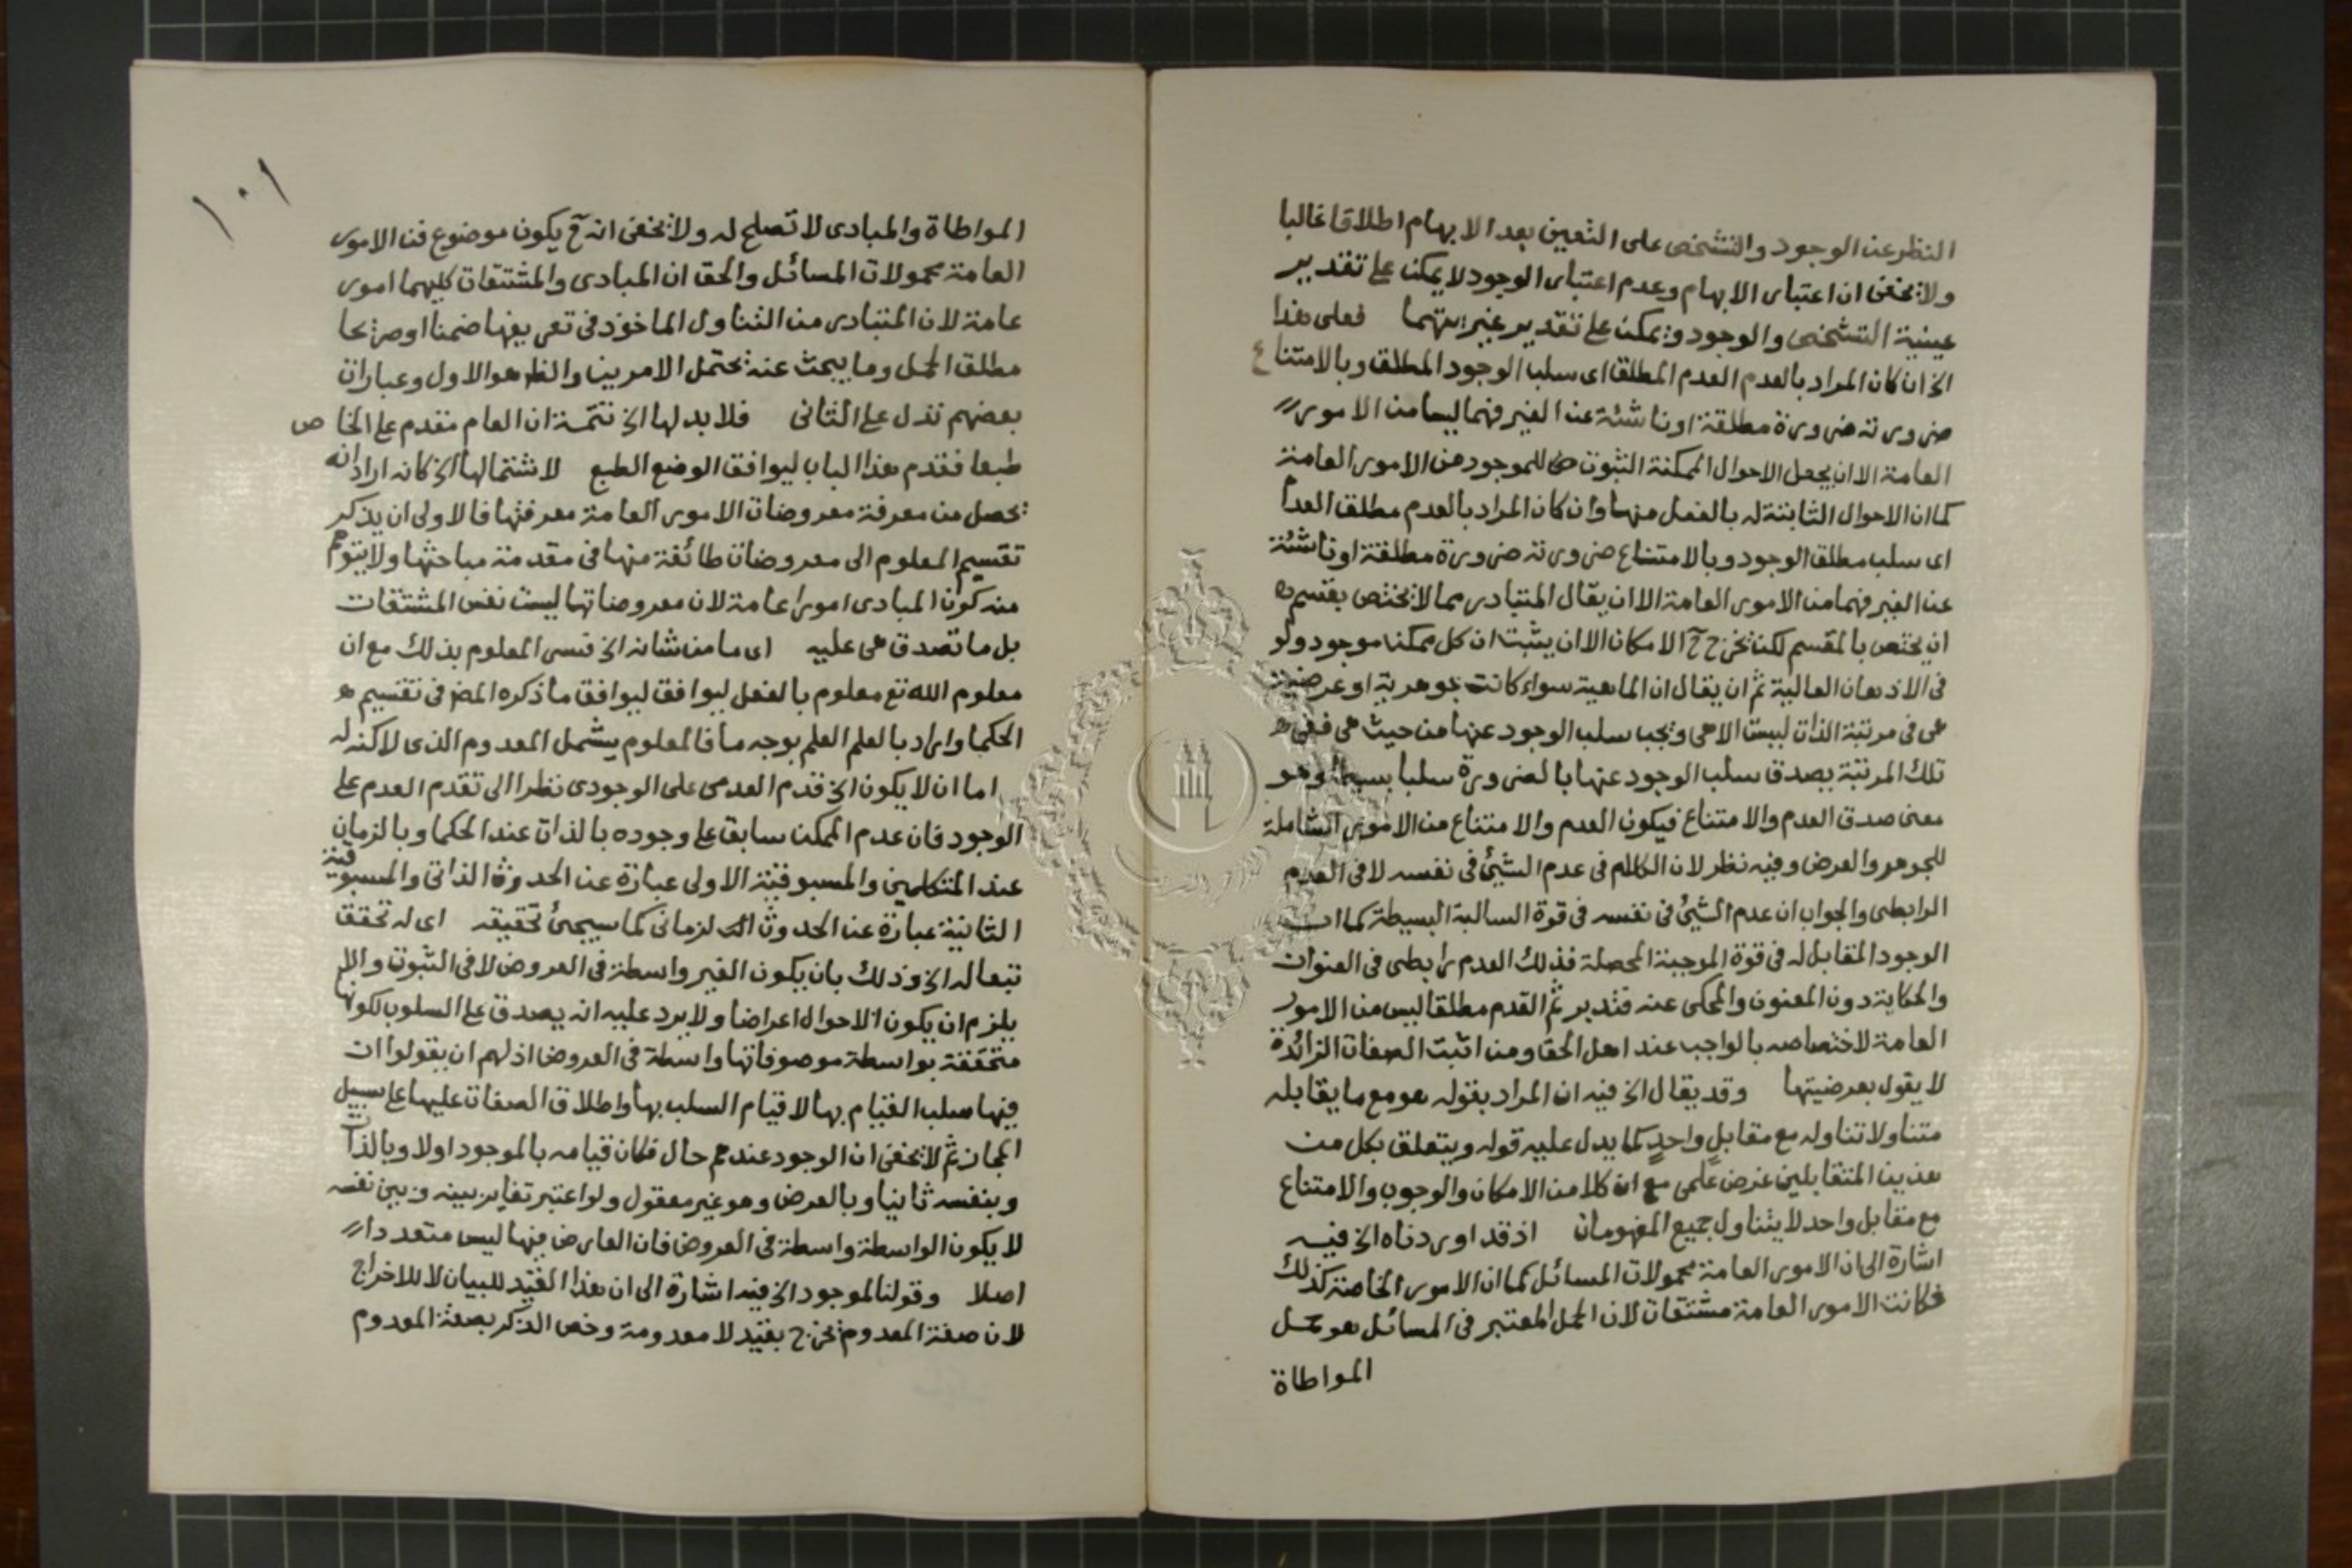 النظر عن الوجود والتشخص على التعين بعد الابهام اطلاقا غالبا
ولا يخفى ان اعتبار الابهام وعدم اعتبار الوجود لا يمكن على تقدير
عينية التشخص والوجود ويمكن على تقدير غيريتهما فعلى هذا
الخ ان كان المراد بالعدم العدم المطلق اى سلب الوجود المطلق وبالامتناع
ضرورته ضرورة مطلقة او ناشئة عن الغير فهما ليسا من الامور
العامة الا ان يجعل الاحوال الممكنة الثبوت للموجود من الامور العامة
كما ان الاحوال الثابتة له بالفعل منها وان كان المراد بالعدم مطلق العدم
اى سلب مطلق الوجود وبالامتناع ضرورته ضرورة مطلقة او ناشئة
عن الغير فهما من الامور العامة الا ان يقال المتبادر مما لا يختص بقسم
ان يختص بالمقسم لكن يخرج ح الامكان الا ان يثبت ان كل ممكن موجود ولو
فى الاذهان العالية ثم ان يقال ان الماهية سواء كانت جوهرية او عرضية
هى فى مرتبة الذات ليست الا هى ويجب سلب الوجود عنها من حيث هى ففى
تلك المرتبة يصدق سلب الوجود عنها بالضرورة سلبا بسيطا وهو
معنى صدق العدم والامتناع فيكون العدم والامتناع من الامور الشاملة
للجوهر والعرض وفيه نظر لان الكلام فى عدم الشيئ فى نفسه لا فى العدم
الرابطى والجواب ان عدم الشيئ فى نفسه فى قوة السالبة البسيطة كما ان
الوجود المقابل له فى قوة الموجبة المحصلة فذلك العدم رابطى فى العنوان
والحكاية دون المعنون والمحكى عنه فتدبر ثم القدم مطلقا ليس من الامور
العامة لاختصاصه بالواجب عند اهل الحق ومن اثبت الصفات الزائدة
لا يقول بعرضيتها وقد يقال الخ فيه ان المراد بقوله هو مع ما يقابله
متناولا تناوله مع مقابل واحد كما يدل عليه قوله ويتعلق بكل من
هذين المتقابلين غرض علمى مع ان كلا من الامكان والوجوب والامتناع
مع مقابل واحد لا يتناول جميع المفهومات اذ قد اوردناه الخ فيه
اشارة الى ان الامور العامة محمولات المسائل كما ان الامور الخاصة كذلك
فكانت الامور العامة مشتقات لان الحمل المعتبر فى المسائل هو حمل
المواطاة
١٠١
المواطاة والمبادى لا تصلح له ولا يخفى انه ح يكون موضوع فن الامور
العامة محمولات المسائل والحق ان المبادى والمشتقات كليهما امور
عامة لان المتبادر من التناول الماخوذ فى تعريفها ضمنا او صريحا
مطلق الحمل وما يبحث عنه يحتمل الامرين والظ هو الاول وعبارات
بعضهم تدل على الثانى فلا بد لها الخ تتمة ان العام مقدم على الخاص
طبعا فقدم هذا الباب ليوافق الوضع الطبع لاشتمالها الخ كانه اراد انه
يحصل من معرفة معروضات الامور العامة معرفتها فالاولى ان يذكر
تقسيم المعلوم الى معروضات طائفة منها فى مقدمة مباحثها ولا يتوهم
منه كون المبادى امورا عامة لان معروضاتها ليست نفس المشتقات
بل ما تصدق هى عليه اى ما من شانه الخ فسر المعلوم بذلك مع ان
معلوم الله تع معلوم بالفعل ليوافق ليوافق ما ذكره المص فى تقسيم
الحكما واراد بالعلم العلم بوجه ما فالمعلوم يشمل المعدوم الذى لا كنه له
اما ان لا يكون الخ قدم العدمى على الوجودى نظرا الى تقدم العدم على
الوجود فان عدم الممكن سابق على وجوده بالذات عند الحكما وبالزمان
عند المتكلمين والمسبوقية الاولى عبارة عن الحدوث الذاتى والمسبوقية
الثانية عبارة عن الحدوث لزمانى كما سيجئ تحقيقه اى له تحقق
تبعا له الخ وذلك بان يكون الغير واسطة فى العروض لا فى الثبوت والا
يلزم ان يكون الاحوال اعراضا ولا يرد عليه انه يصدق على السلوب لكونها
متحققة بواسطة موصوفاتها واسطة فى العروض اذ لهم ان يقولوا ان
فيها سلب القيام بها لا قيام السلب بها واطلاق الصفات عليها على سبيل
المجاز ثم لا يخفى ان الوجود عندهم حال فكان قيامه بالموجود اولا وبالذات
وبنفسه ثانيا وبالعرض وهو غير معقول ولو اعتبر تغاير بينه وبين نفسه
لا يكون الواسطة واسطة فى العروض فان العارض فيها ليس متعددا
اصلا وقولنا لموجود الخ فيه اشارة الى ان هذا القيد للبيان لا للاخراج
لان صفة المعدوم يخرج بقيد لا معدومة وخص الذكر بصفة المعدوم